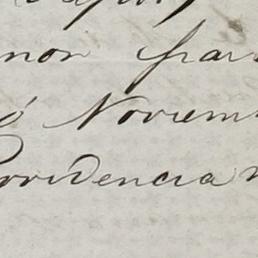 nor par
o Noviem
Providencia